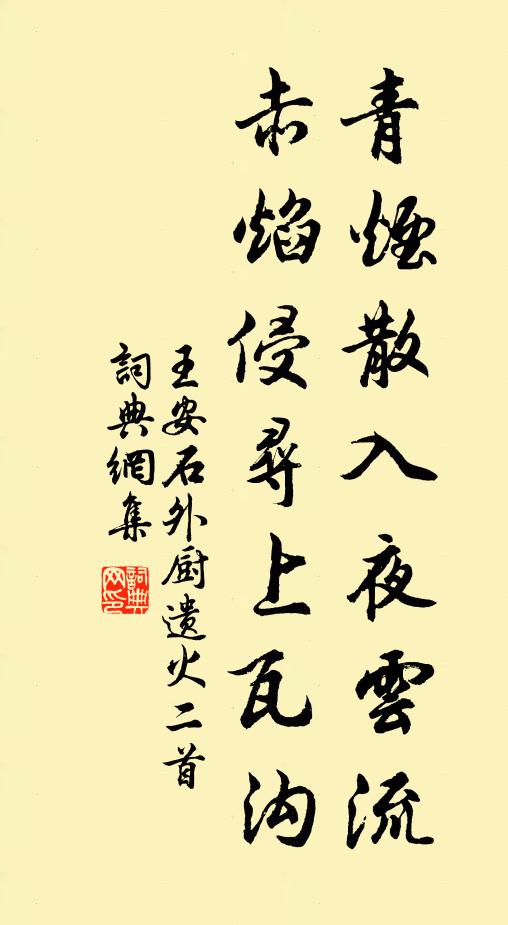 青煙散入夜雲流
赤焰侵尋上瓦沟
王安石外厨遗火二首
詞典網集
詞典網印